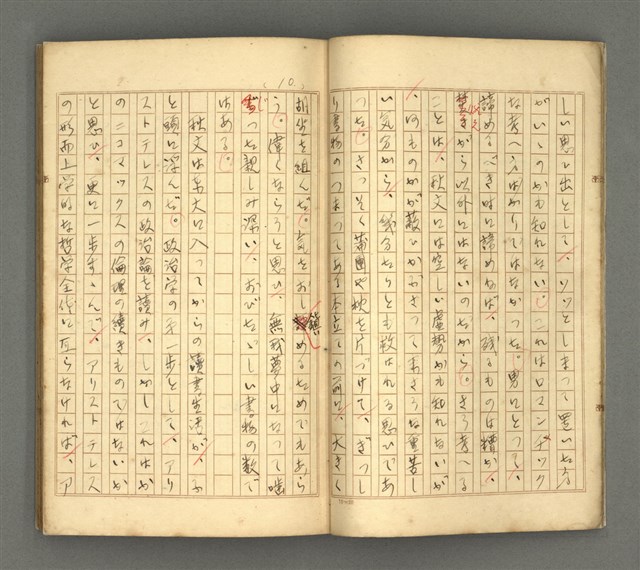 しい思ひ出として、ソツとしまつて置いた方
がいゝのかも知れない。これはロマンチック
な考へ方ばかりではなかつた。男にとつて、
諦めるべき時に諦めねば、残るものは糟か、
焚きがら以外にはないのだから。さう考へる
ことは、秋文には空しい虚勢かも知れないが
、何ものかが蔽ひかぶさつて来さうな重苦し
い気分から、幾分なりとも救はれる思ひであ
つた。さつそく蒲団や枕を片づけて、ぎつし
り書物のつまつてある本立ての前に、大きく
10.
胡坐を組んだ。気をおし鎮めるためでもあら
う。偉くならうと思ひ、無我夢中になつて噛
つた親しみ深い、おびただしい書物の数で
はある。
秋文は京大に入つてからの讀書生活が、ふ
と頭に浮んだ。政治学の第一歩として、アリ
ストテレスの政治論を讀み、しかしこれはか
のニコマックスの倫理の続きものではないか
と思ひ、更に一歩すゝんで、アリストテレス
の形而上学的な哲学全体に亙らなければ、ア